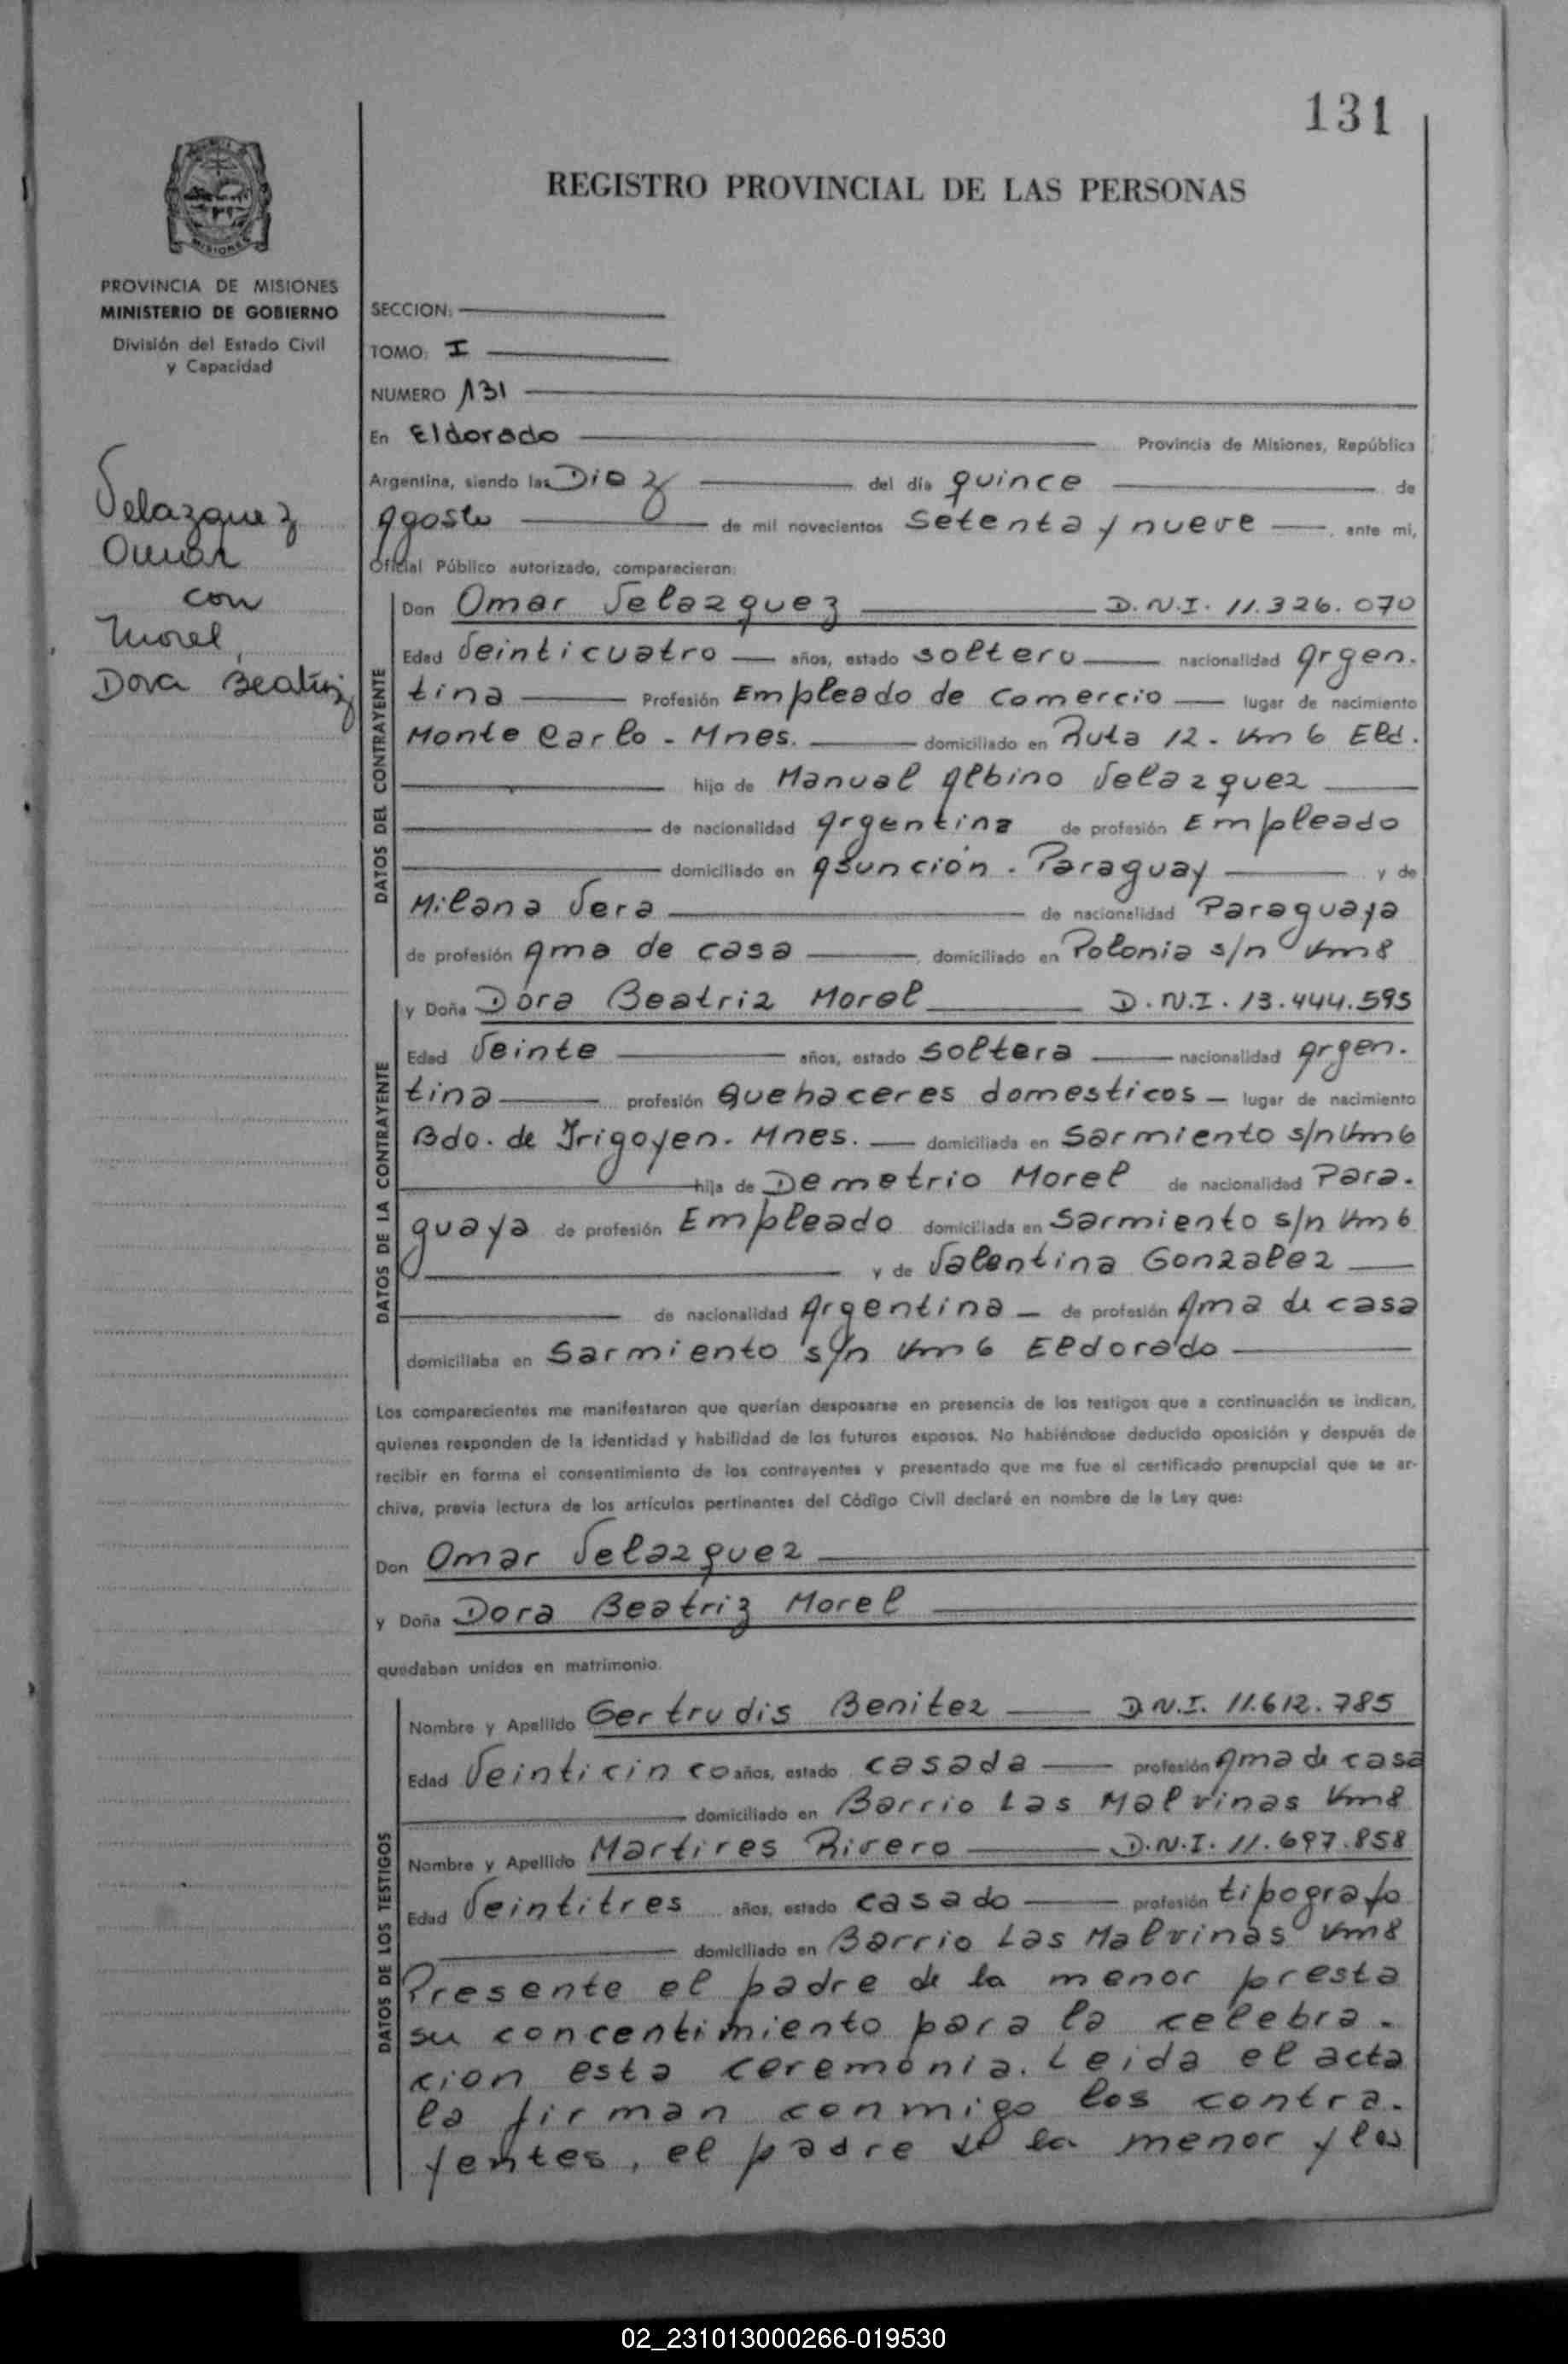 131
REGISTRO PROVINCIAL DE LAS PERSONAS
MISIONES
PROVINCIA DE MISIONES
MINISTERIO DE GOBIERNO
División del Estado Civil
y Capacidad
Velazquez
Omar
con
Morel,
Dora Beatriz
SECCION:
TOMO: I
NUMERO 131
En Eldorado Provincia de Misiones, República
Argentina, siendo las Diez del día quince de
Agosto de mil novecientos setenta y nueve, ante mi,
Oficial Público autorizado, comparecieron:
DATOS DEL CONTRAYENTE
Don Omar Velazquez D.N.I. 11.326.070
Edad Veinticuatro años, estado soltero nacionalidad Argen-
tina Profesión Empleado de Comercio lugar de nacimiento
Monte Carlo - Mnes. domiciliado en Ruta 12 - Km 6 Eld.
hijo de Manual Albino Velazquez
de nacionalidad Argentina de profesión Empleado
domiciliado en Asunción - Paraguay y de
Milana Vera de nacionalidad Paraguaya
de profesión Ama de casa, domiciliado en Polonia s/n Km8
DATOS DE LA CONTRAYENTE
y Doña Dora Beatriz Morel D.N.I. 13.444.595
Edad Veinte años, estado soltera nacionalidad Argen-
tina profesión Quehaceres domesticos lugar de nacimiento
Bdo. de Irigoyen - Mnes. domiciliada en Sarmiento s/n Km6
hija de Demetrio Morel de nacionalidad Para-
guaya de profesión Empleado domiciliada en Sarmiento s/n Km6
y de Valentina Gonzalez
de nacionalidad Argentina de profesión Ama de casa
domiciliaba en Sarmiento s/n Km 6 Eldorado
Los comparecientes me manifestaron que querían desposarse en presencia de los testigos que a continuación se indican,
quienes responden de la identidad y habilidad de los futuros esposos. No habiéndose deducido oposición y después de
recibir en forma el consentimiento de los contrayentes y presentado que me fue el certificado prenupcial que se ar-
chiva, previa lectura de los artículos pertinentes del Código Civil declaré en nombre de la Ley que:
Don Omar Velazquez
y Doña Dora Beatriz Morel
quedaban unidos en matrimonio.
DATOS DE LOS TESTIGOS
Nombre y Apellido Gertrudis Benitez D.N.I. 11.612.785
Edad Veinticinco años, estado casada profesión Ama de casa
domiciliado en Barrio Las Malvinas Km8
Nombre y Apellido Martires Rivero D.N.I. 11.697.858
Edad Veintitres años, estado casado profesión tipografo
domiciliado en Barrio Las Malvinas Km8
Presente el padre de la menor presta
su concentimiento para la celebra-
cion esta ceremonia. Leida el acta
la firman conmigo los contra-
yentes, el padre de la menor y los
02_231013000266-019530